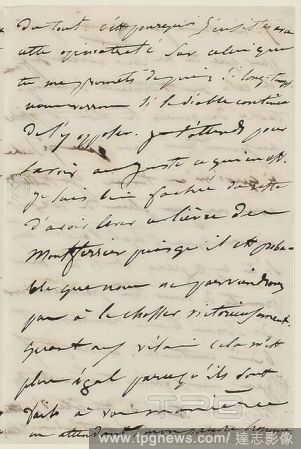 du tout. c'est pourquoi j'insiste avec
cette opiniatreté sur celui que
tu me promets depuis si longtemps
nous verrons si le diable continue
de s'y opposer. je t'attends pour
savoir au juste ce qui en est.
je suis bien fachée de cette
d'avoir levé ce lièvre de
Montferrier puisqu'il est proba-
ble que nous ne parviendrons
pas à le chasser victorieusement.
quant aux vilains cela m'est
plus égal parce qu'ils sont
faits à
en attendant mon pauvre
TPG
www.tpgnews.com / 達志影像